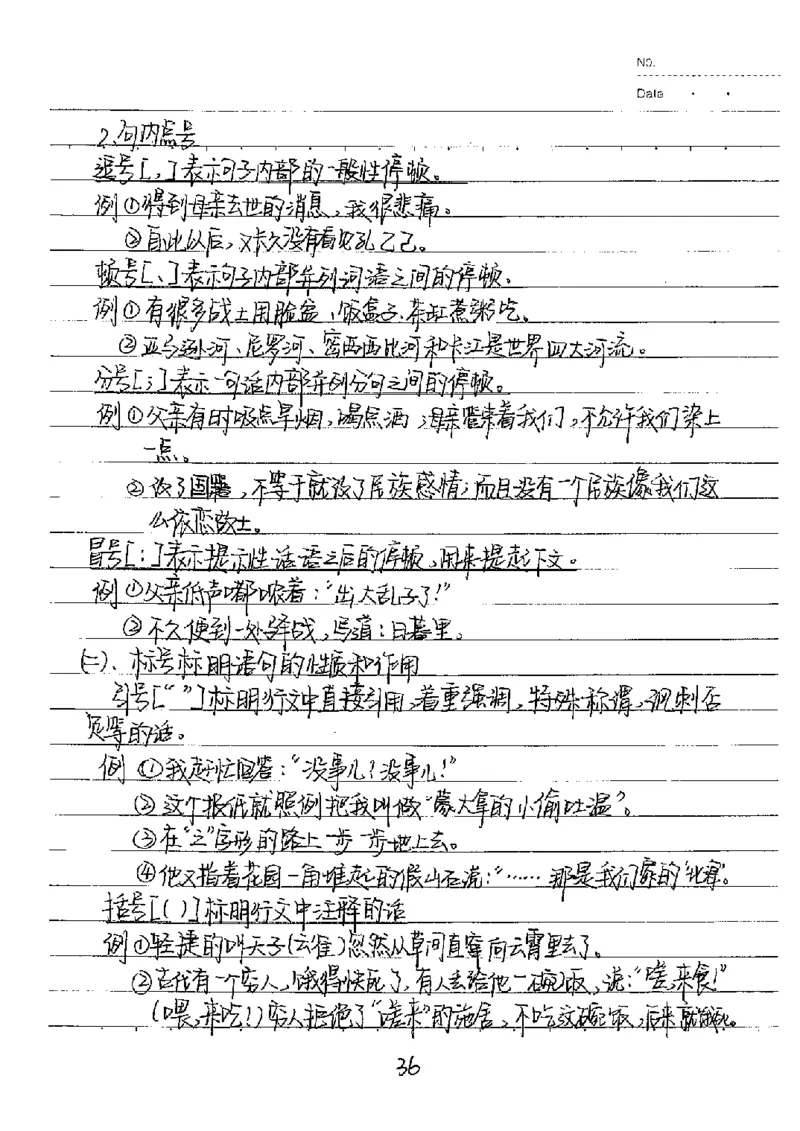 NO.
Date
2、句内点号
逗号[，]表示句子内部的一般性停顿。
例①得到母亲去世的消息，我很悲痛。
②自此以后，又长久没有看见孔乙己。
顿号[、]表示句子内部并列词语之间的停顿.
例①有很多战士用脸盆、饭盒子、茶缸煮粥吃。
②亚马逊河、尼罗河、密西西比河和长江是世界四大河流。
分号[；]表示一句话内部并列分句之间的停顿。
例①父亲有时吸点旱烟，喝点酒；母亲管束着我们，不允许我们染上
一点。
②改了国籍，不等于就改了民族感情；而且没有一个民族像我们这
么依恋故土。
冒号[：]表示提示性话语之后的停顿，用来提起下文。
例①父亲低声嘟哝着：“出大乱子了！”
②不久便到一处驿站，写道：日暮里。
(二)、标号标明语句的性质和作用
引号[“ ”]标明行文中直接引用，着重强调，特殊称谓，讽刺否
定等的话。
例①我赶忙回答：“没事儿？没事儿！”
②这个报纸就照例把我叫做“蒙大拿的小偷吐温”。
③在“之”字形的路上一步一步地上去。
④他又指着花园一角堆起的假山石说：“……那是我们家的‘北海’。
括号[( )]标明行文中注释的话
例①轻捷的叫天子(云雀)忽然从草间直窜向云霄里去了。
②古代有一个穷人，饿得快死了，有人丢给他一碗饭，说：“嗟，来食！”
(喂，来吃！)穷人拒绝了“嗟来”的施舍，不吃这碗饭，后来就饿死。
36